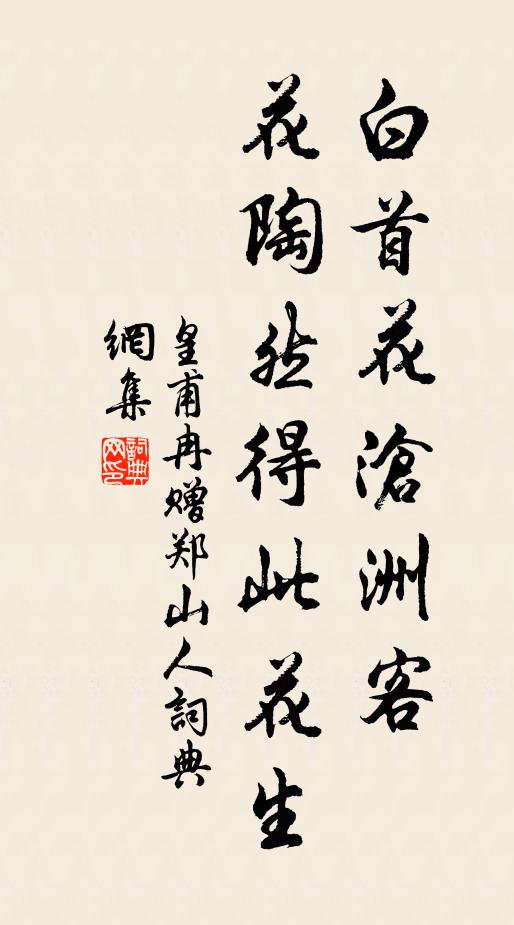 白首花滄洲客
花陶然得此花生
皇甫冉赠郑山人詞典
網集
詞典網印